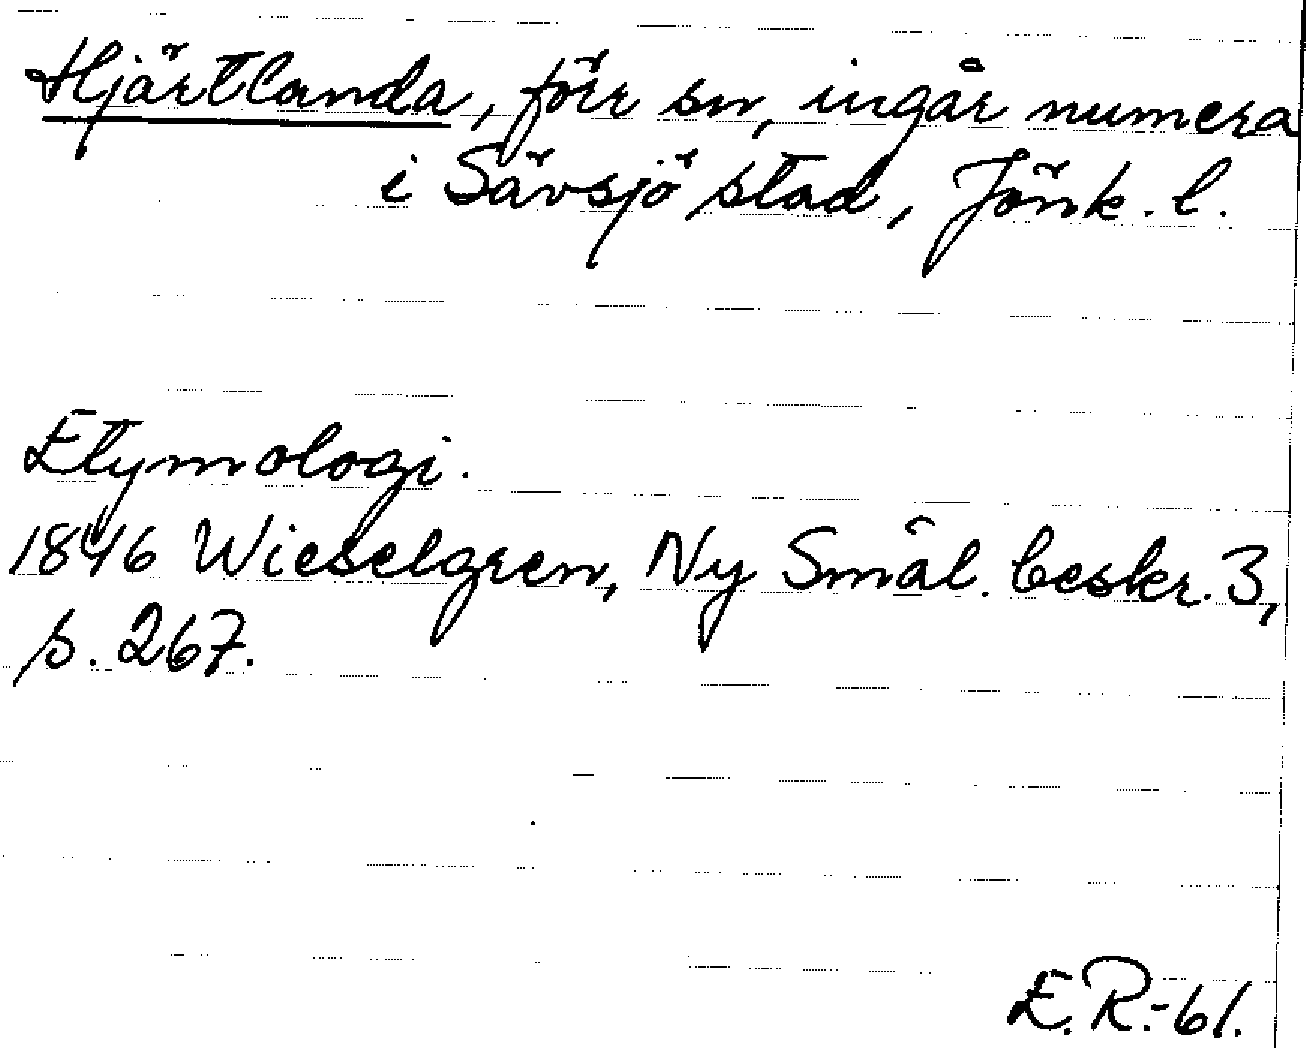 Hjärtlanda, förr sn, ingår numera
i Sävsjö stad, Jönk. l.
Etymologi.
1846 Wieselgren, Ny Smål. beskr. 3,
s. 267.
E.R.-61.